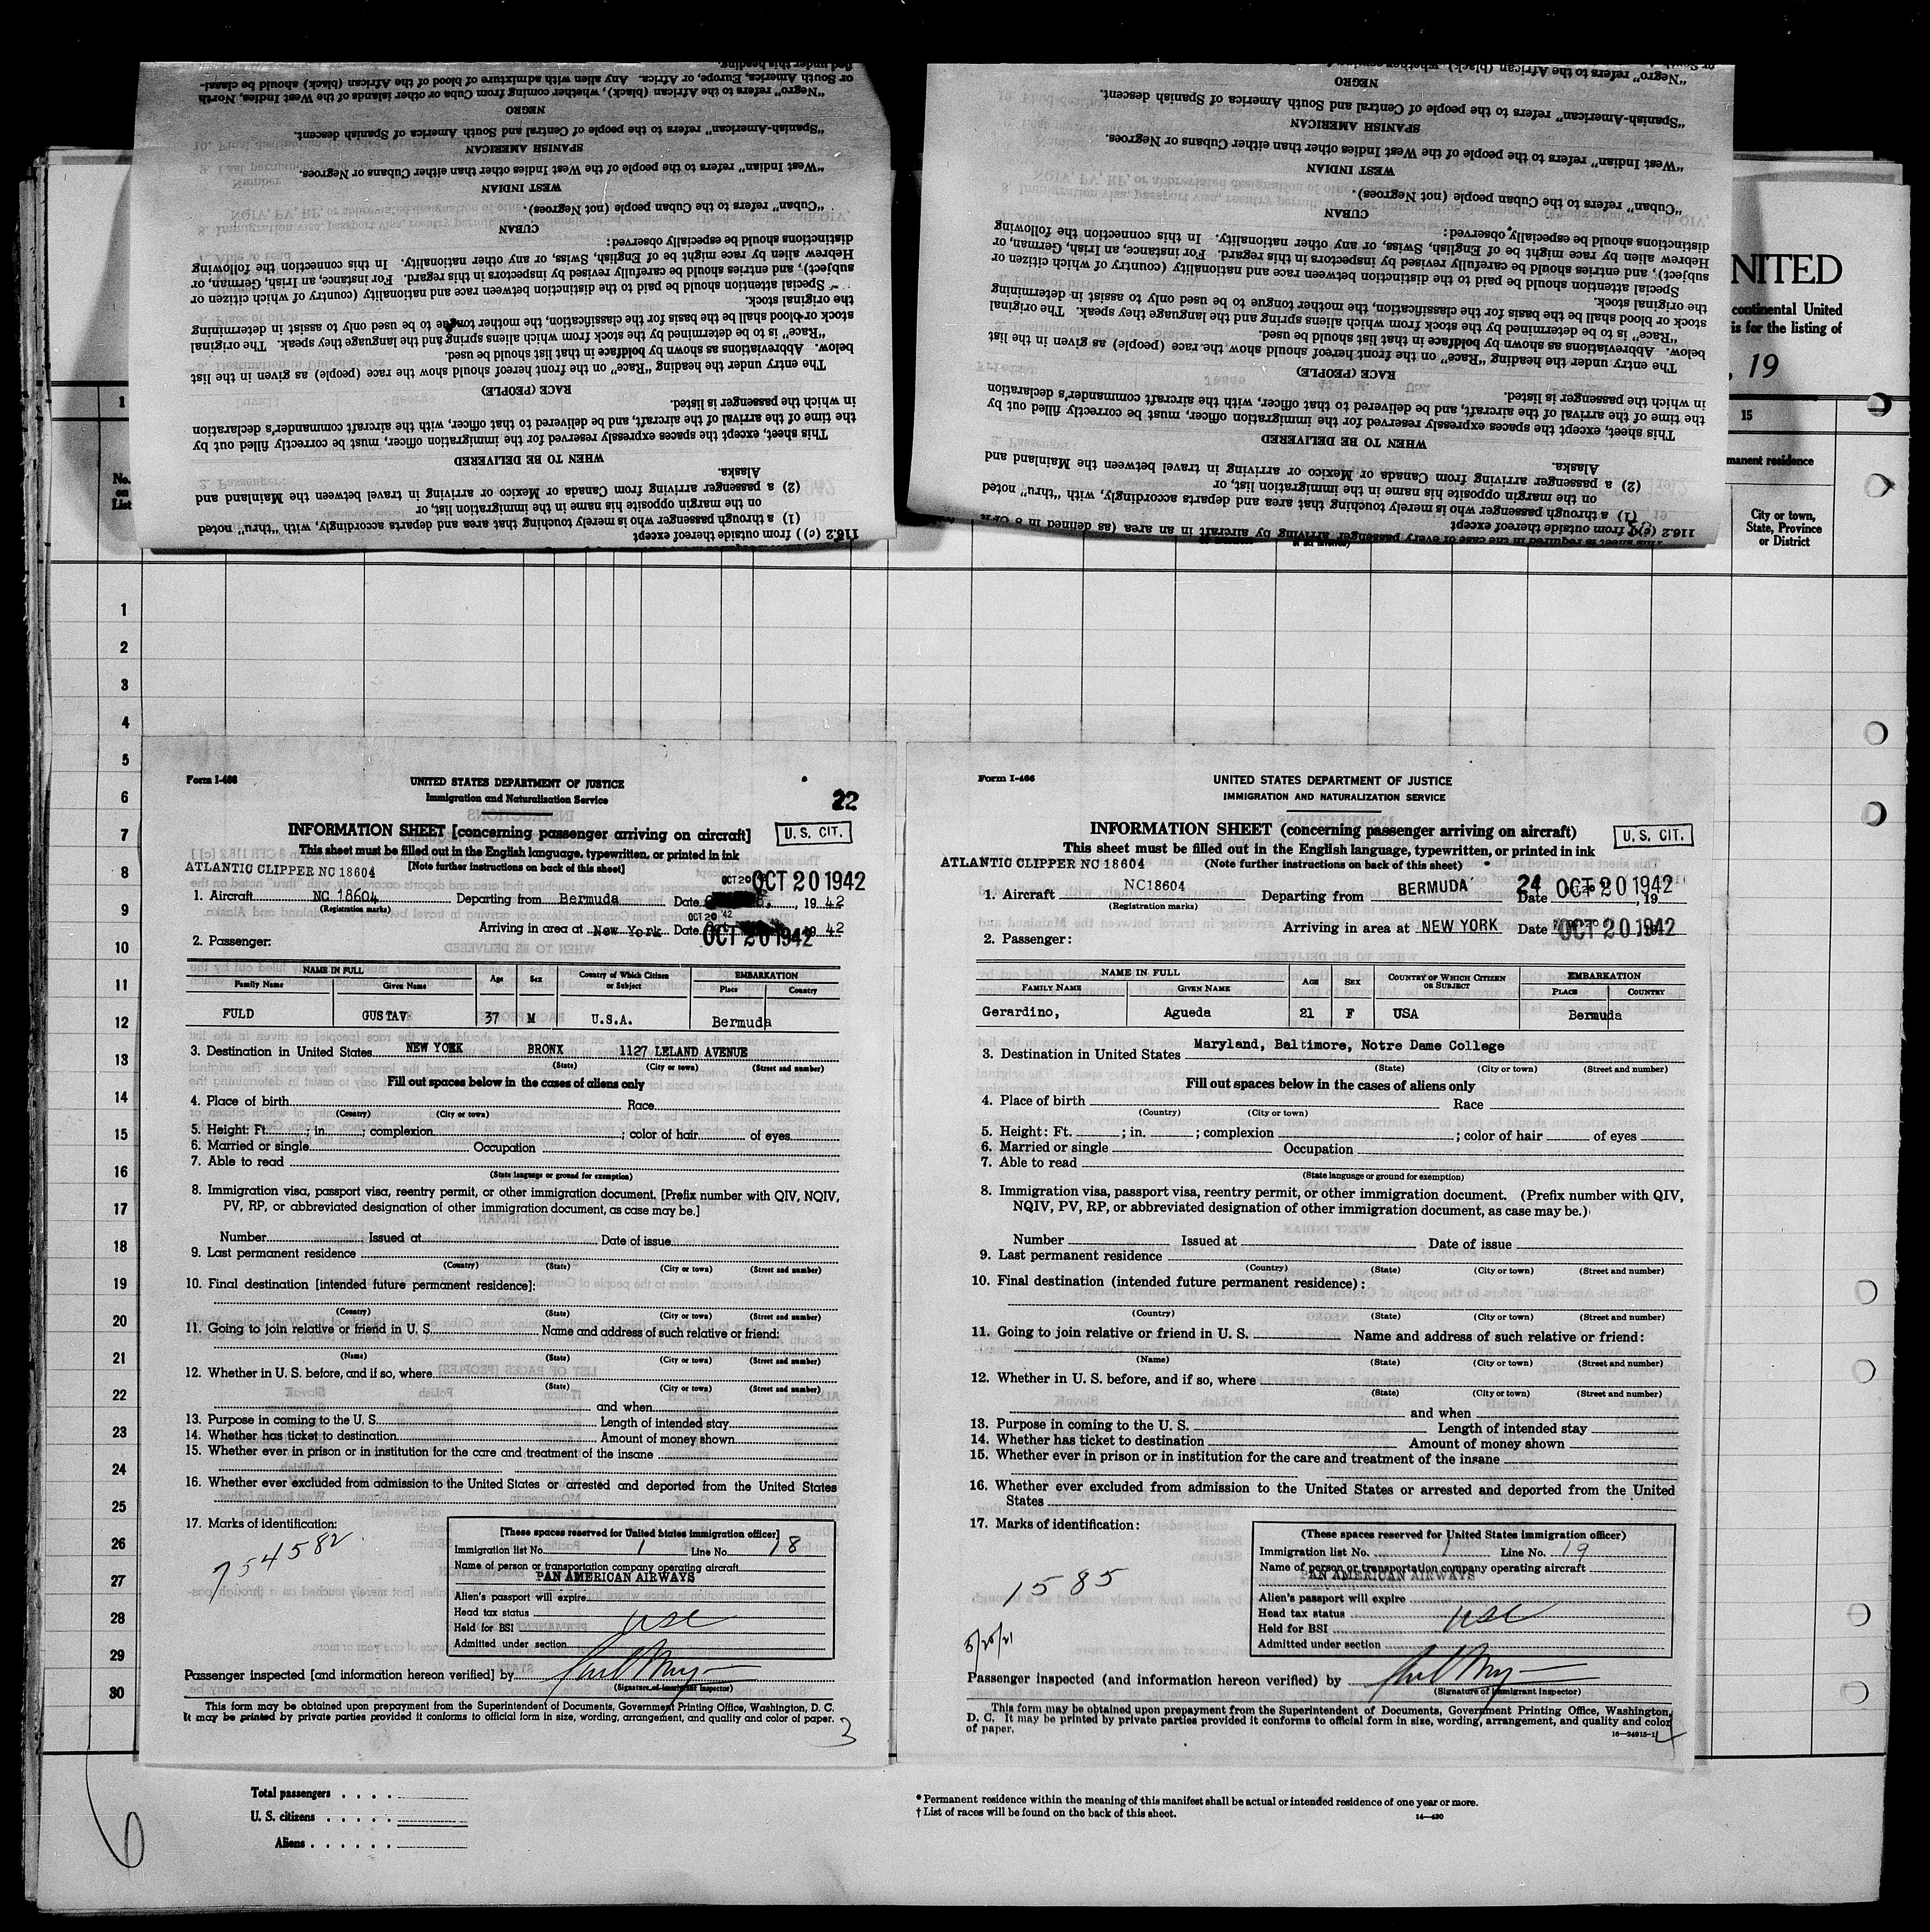 fied under this heading.
or South America, Europe, or Africa. Any alien with admixture of blood of the African (black) should be classi-
"Negro" refers to the African (black), whether coming from Cuba or other islands of the West Indies, North
NEGRO
"Spanish-American" refers to the people of Central and South America of Spanish descent.
SPANISH AMERICAN
"West Indian" refers to the people of the West Indies other than either Cubans or Negroes.
WEST INDIAN
"Cuban" refers to the Cuban people (not Negroes).
CUBAN
distinctions should be especially observed:
Hebrew alien by race might be of English, Swiss, or any other nationality. In this connection the following
subject), and entries should be carefully revised by inspectors in this regard. For instance, an Irish, German, or
Special attention should be paid to the distinction between race and nationality (country of which citizen or
the original stock.
stock or blood shall be the basis for the classification, the mother tongue to be used only to assist in determining
"Race" is to be determined by the stock from which aliens spring and the language they speak. The original
below. Abbreviations as shown by boldface in that list should be used.
The entry under the heading "Race" on the front hereof should show the race (people) as given in the list
RACE (PEOPLE)
in which the passenger is listed.
the time of the arrival of the aircraft, and be delivered to that officer, with the aircraft commander's declaration
This sheet, except the spaces expressly reserved for the immigration officer, must be correctly filled out by
WHEN TO BE DELIVERED
Alaska.
(2) a passenger arriving from Canada or Mexico or arriving in travel between the Mainland and
on the margin opposite his name in the immigration list, or
(1) a through passenger who is merely touching that area and departs accordingly, with "thru" noted
116.2 (c) ) from outside thereof except
"Negro" refers to the African (black), whether
NEGRO
"Spanish-American" refers to the people of Central and South America of Spanish descent.
SPANISH AMERICAN
"West Indian" refers to the people of the West Indies other than either Cubans or Negroes.
WEST INDIAN
"Cuban" refers to the Cuban people (not Negroes).
CUBAN
distinctions should be especially observed:
Hebrew alien by race might be of English, Swiss, or any other nationality. In this connection the following
subject), and entries should be carefully revised by inspectors in this regard. For instance, an Irish, German, or
Special attention should be paid to the distinction between race and nationality (country of which citizen or
the original stock.
stock or blood shall be the basis for the classification, the mother tongue to be used only to assist in determining
"Race" is to be determined by the stock from which aliens spring and the language they speak. The original
below. Abbreviations as shown by boldface in that list should be used.
The entry under the heading "Race" on the front hereof should show the race (people) as given in the list
RACE (PEOPLE)
in which the passenger is listed.
the time of the arrival of the aircraft, and be delivered to that officer, with the aircraft commander's declaration
This sheet, except the spaces expressly reserved for the immigration officer, must be correctly filled out by
WHEN TO BE DELIVERED
Alaska.
(2) a passenger arriving from Canada or Mexico or arriving in travel between the Mainland and
on the margin opposite his name in the immigration list, or
(1) a through passenger who is merely touching that area and departs accordingly, with "thru" noted
116.2 (c) ) from outside thereof except
This sheet is required in the case of every passenger arriving by aircraft in an area (as defined in 8 CFR
NITED
continental United
is for the listing of
, 19
1
15
manent residence
No. on List
City or town, State, Province or District
1
2
3
4
5
6
7
8
9
10
11
12
13
14
15
16
17
18
19
20
21
22
23
24
25
26
27
28
29
30
Form I-466
UNITED STATES DEPARTMENT OF JUSTICE
Immigration and Naturalization Service
22
INFORMATION SHEET [concerning passenger arriving on aircraft]
U. S. CIT.
This sheet must be filled out in the English language, typewritten, or printed in ink
ATLANTIC CLIPPER NC 18604 [Note further instructions on back of this sheet]
OCT 20 OCT 20 1942
1. Aircraft NC 18604 Departing from Bermuda Date , 19 42
(Registration marks)
OCT 20 '42
Arriving in area at New York Date OCT 20 1942 19 42
2. Passenger:
NAME IN FULL Age Sex Country of Which Citizen or Subject EMBARKATION
Family Name Given Name Place Country
FULD GUSTAV 37 M U.S.A. Bermuda
3. Destination in United States NEW YORK BRONX 1127 LELAND AVENUE
(State) (City or town) (Street and number)
Fill out spaces below in the cases of aliens only
4. Place of birth Race
(Country) (City or town)
5. Height: Ft. ; in. ; complexion ; color of hair of eyes
6. Married or single Occupation
7. Able to read
(State language or ground for exemption)
8. Immigration visa, passport visa, reentry permit, or other immigration document. [Prefix number with QIV, NQIV,
PV, RP, or abbreviated designation of other immigration document, as case may be.]
Number Issued at Date of issue
9. Last permanent residence
(Country) (State) (City or town) (Street and number)
10. Final destination [intended future permanent residence]:
(Country) (State) (City or town) (Street and number)
11. Going to join relative or friend in U. S. Name and address of such relative or friend:
(Name) (State) (City or town) (Street and number)
12. Whether in U. S. before, and if so, where
(State) (City or town) (Street and number)
and when
13. Purpose in coming to the U. S. Length of intended stay
14. Whether has ticket to destination Amount of money shown
15. Whether ever in prison or in institution for the care and treatment of the insane
16. Whether ever excluded from admission to the United States or arrested and deported from the United States
17. Marks of identification:
754582
[These spaces reserved for United States immigration officer]
Immigration list No. 1 Line No. 18
Name of person or transportation company operating aircraft
PAN AMERICAN AIRWAYS
Alien's passport will expire
Head tax status usc
Held for BSI
Admitted under section
Passenger inspected [and information hereon verified] by
(Signature of immigrant inspector)
This form may be obtained upon prepayment from the Superintendent of Documents, Government Printing Office, Washington, D. C.
It may be printed by private parties provided it conforms to official form in size, wording, arrangement, and quality and color of paper.
3
Form I-466
UNITED STATES DEPARTMENT OF JUSTICE
IMMIGRATION AND NATURALIZATION SERVICE
INFORMATION SHEET (concerning passenger arriving on aircraft)
U. S. CIT.
This sheet must be filled out in the English language, typewritten, or printed in ink
ATLANTIC CLIPPER NC 18604 (Note further instructions on back of this sheet)
1. Aircraft NC18604 Departing from BERMUDA 24 Date OCT 20 1942 , 19
(Registration marks)
Arriving in area at NEW YORK Date OCT 20 1942
2. Passenger:
NAME IN FULL AGE SEX COUNTRY OF WHICH CITIZEN OR SUBJECT EMBARKATION
FAMILY NAME GIVEN NAME PLACE COUNTRY
Gerardino, Agueda 21 F USA Bermuda
3. Destination in United States Maryland, Baltimore, Notre Dame College
(State) (City or town) (Street and number)
Fill out spaces below in the cases of aliens only
4. Place of birth Race
(Country) (City or town)
5. Height: Ft. ; in. ; complexion ; color of hair of eyes
6. Married or single Occupation
7. Able to read
(State language or ground for exemption)
8. Immigration visa, passport visa, reentry permit, or other immigration document. (Prefix number with QIV,
NQIV, PV, RP, or abbreviated designation of other immigration document, as case may be.)
Number Issued at Date of issue
9. Last permanent residence
(Country) (State) (City or town) (Street and number)
10. Final destination (intended future permanent residence):
(Country) (State) (City or town) (Street and number)
11. Going to join relative or friend in U. S. Name and address of such relative or friend:
(Name) (State) (City or town) (Street and number)
12. Whether in U. S. before, and if so, where
(State) (City or town) (Street and number)
and when
13. Purpose in coming to the U. S. Length of intended stay
14. Whether has ticket to destination Amount of money shown
15. Whether ever in prison or in institution for the care and treatment of the insane
16. Whether ever excluded from admission to the United States or arrested and deported from the United
States
17. Marks of identification:
1585
5/25/21
(These spaces reserved for United States immigration officer)
Immigration list No. 1 Line No. 19
Name of person or transportation company operating aircraft
PAN AMERICAN AIRWAYS
Alien's passport will expire
Head tax status usc
Held for BSI
Admitted under section
Passenger inspected (and information hereon verified) by
(Signature of immigrant inspector)
This form may be obtained upon prepayment from the Superintendent of Documents, Government Printing Office, Washington,
D. C. It may be printed by private parties provided it conforms to official form in size, wording, arrangement, and quality and color
of paper.
16—24915-1
Total passengers . . . .
U. S. citizens . . . . .
Aliens . . . . . .
* Permanent residence within the meaning of this manifest shall be actual or intended residence of one year or more.
† List of races will be found on the back of this sheet.
14—430
6